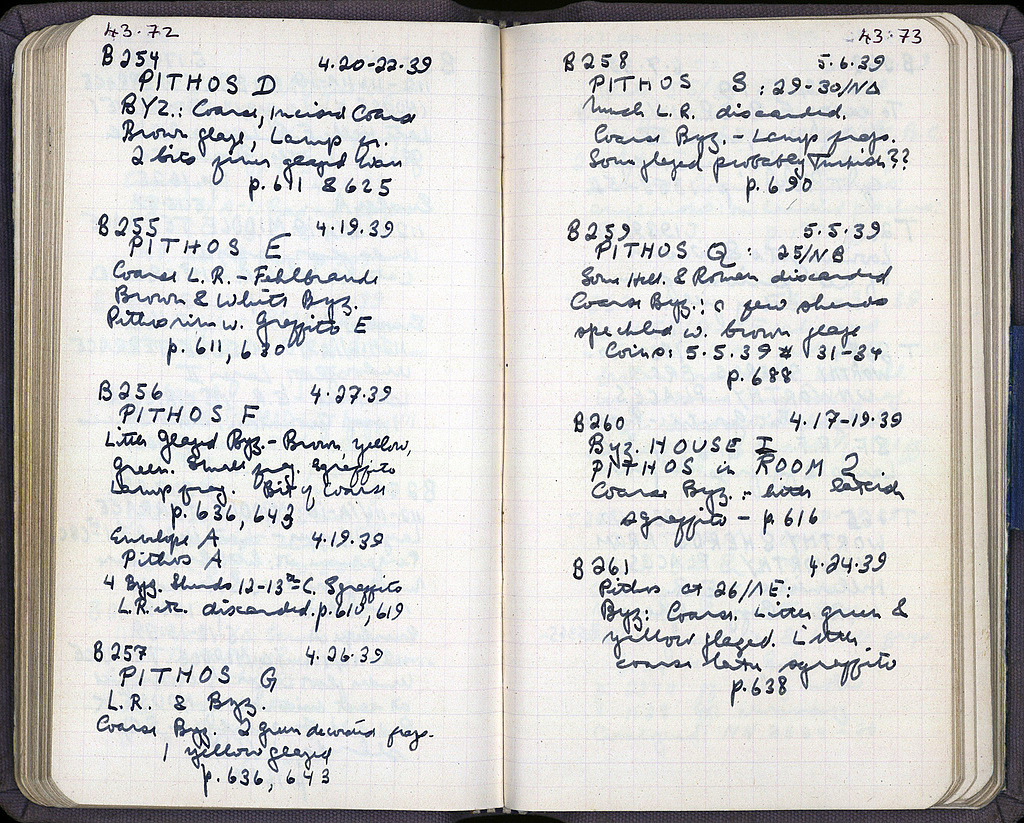 43.72
B254 4.20-22.39
PITHOS D
BYZ.: Coarse, Incised Coarse
Brown glaze, Lamp fr.
2 bits finer glazed ware
p. 611 & 625
B255 4.19.39
PITHOS E
Coarse L.R. - Fehlbrands
Brown & White Byz.
Pithos rim w. Graffito E
p. 611, 630
B256 4.27.39
PITHOS F
Little Glazed Byz. - Brown, yellow,
green. Small frag. sgraffito
Lamp frag. Bit of coarse
p. 636, 643
Envelope A 4.19.39
Pithos A
4 Byz. Sherds 12-13th C. Sgraffito
L.R. etc. discarded. p. 610, 619
B257 4.26.39
PITHOS G
L.R. & Byz.
Coarse Byz. 2 green decorated frags.
1 yellow glazed
p. 636, 643
43.73
B258 5.6.39
PITHOS S: 29-30/ΝΔ
Much L.R. discarded.
Coarse Byz. - Lamp frags.
Some glazed probably Turkish??
p. 690
B259 5.5.39
PITHOS Q: 25/ΝΒ
Some Hell. & Roman discarded
Coarse Byz.: a few sherds
speckled w. brown glaze
Coins: 5.5.39 # 31-34
p. 688
B260 4.17-19.39
Byz. HOUSE I
PITHOS in ROOM 2
Coarse Byz. - little
sgraffito - p. 616
B261 4.24.39
Pithos at 26/ΛΕ:
Byz: Coarse. Little green &
yellow glazed. Little
coarse late sgraffito
p. 638